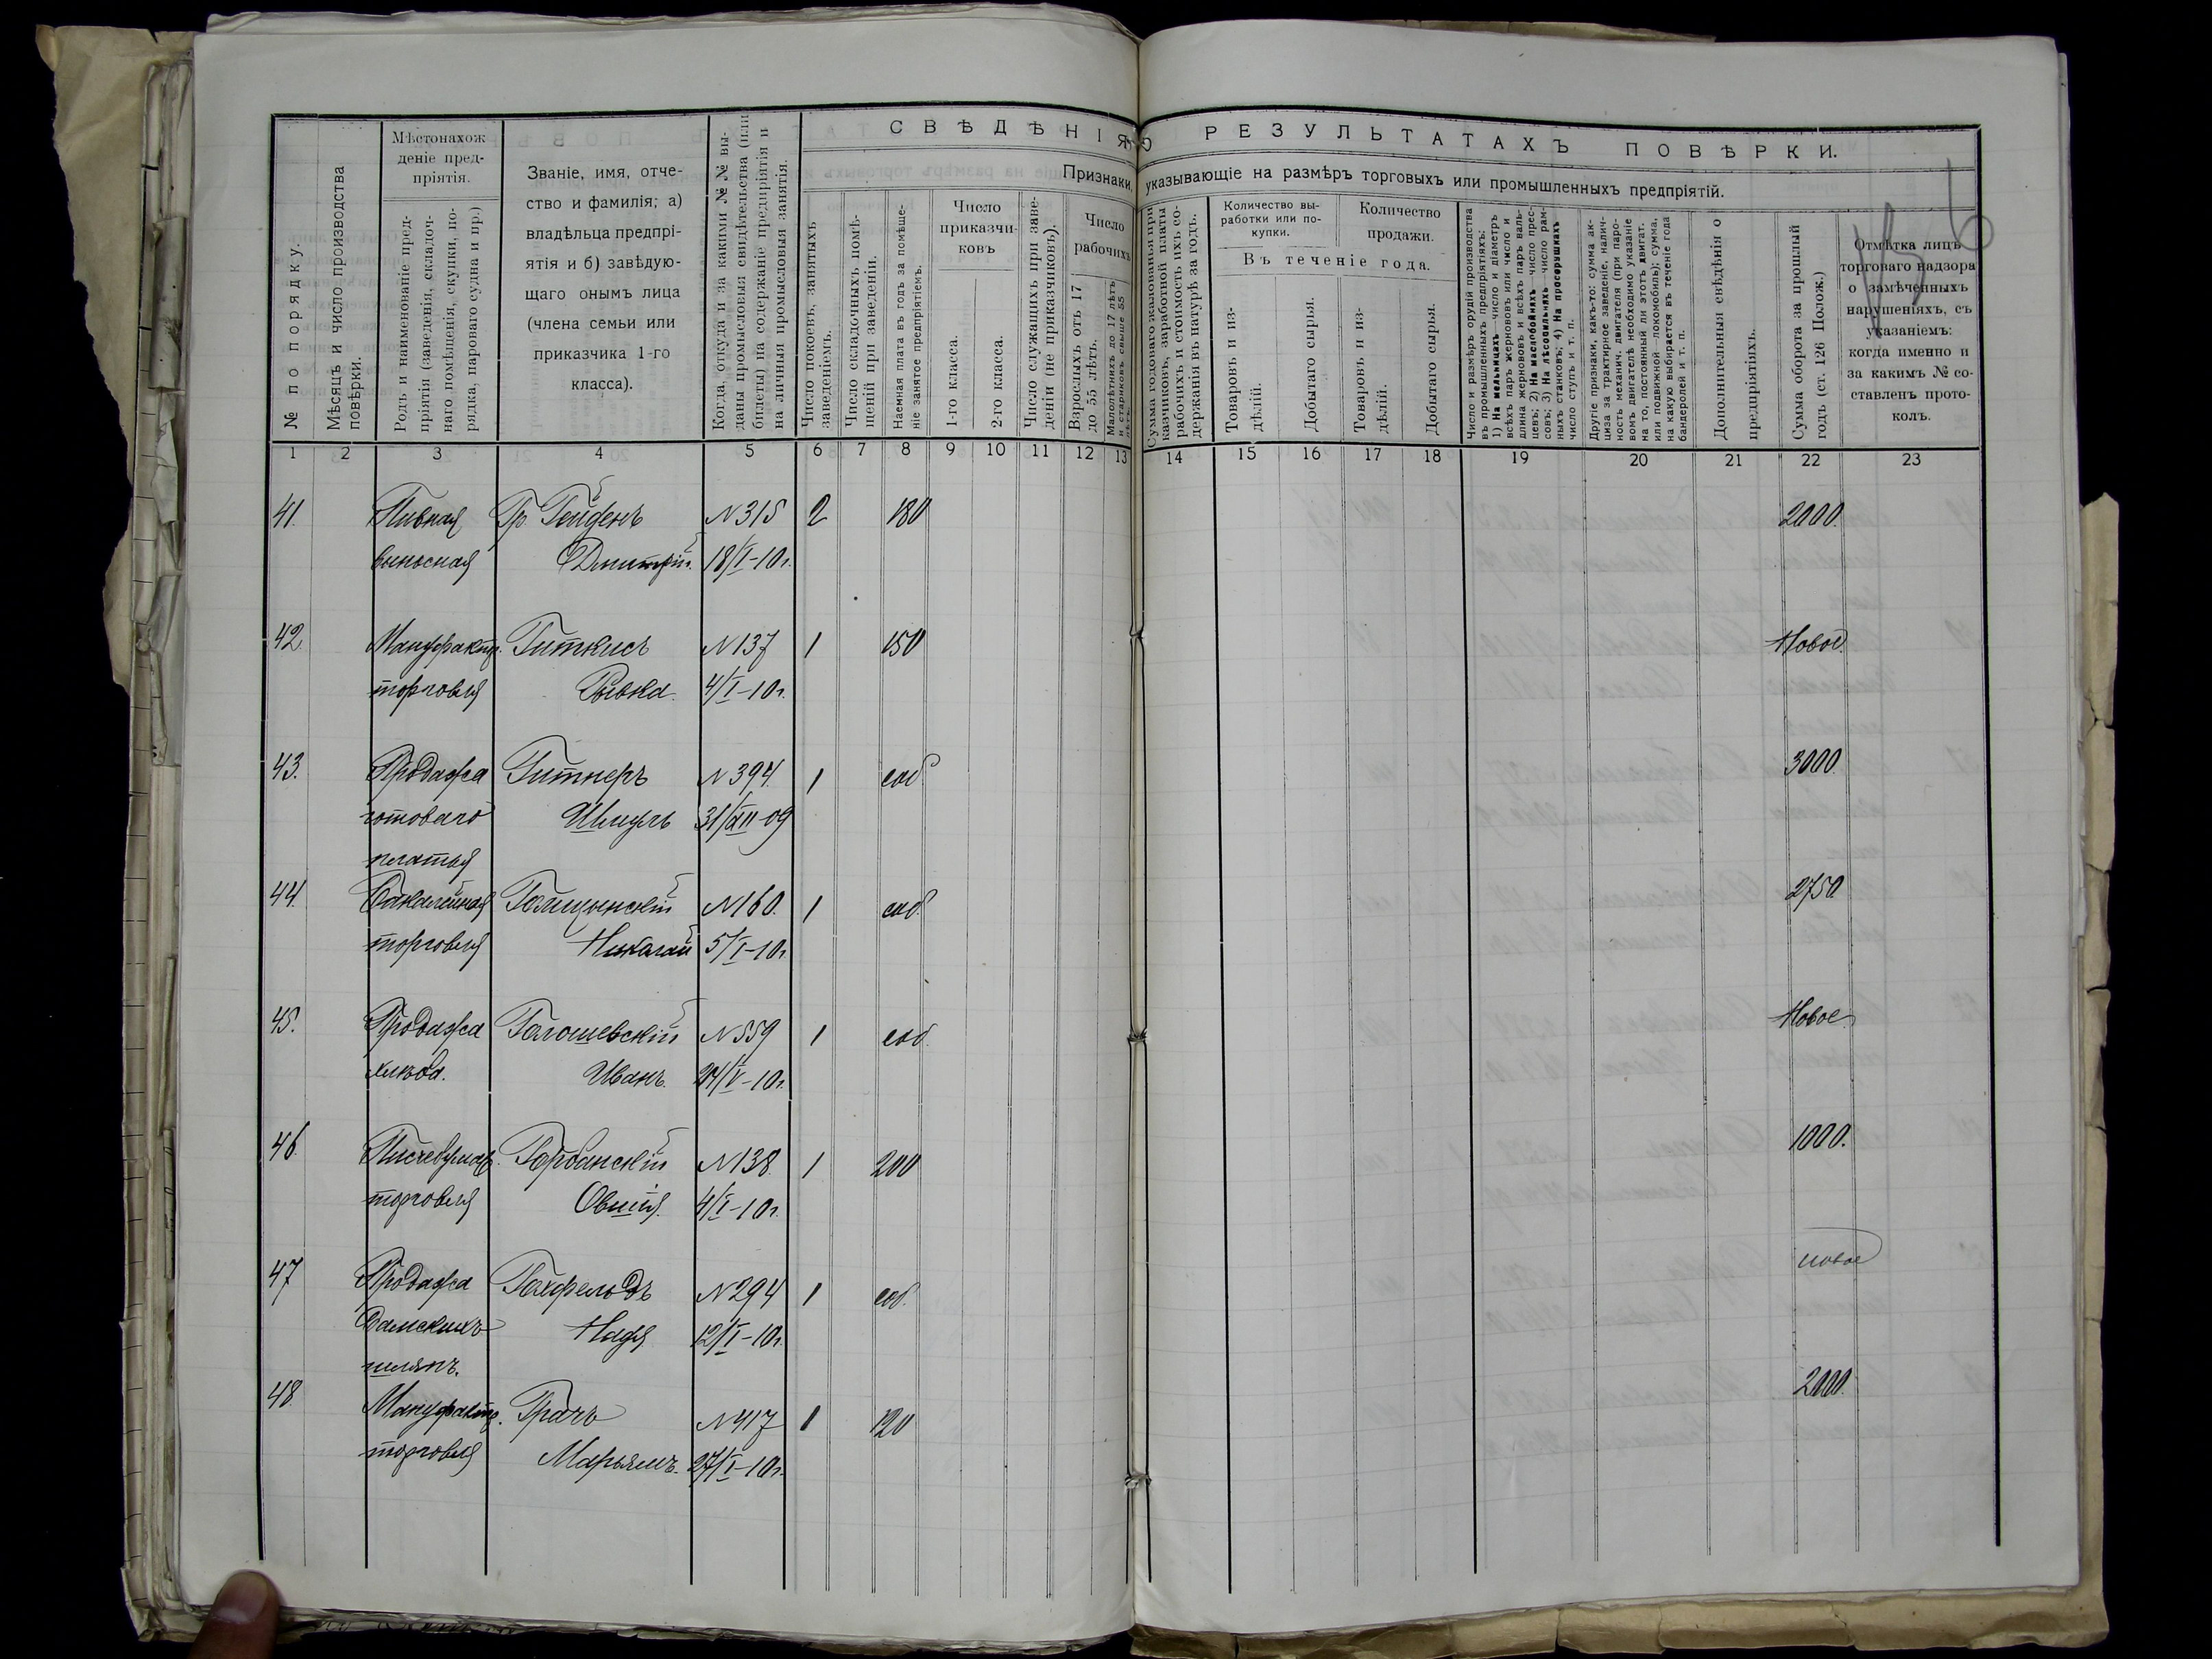 СВѢДѢНІЯ О РЕЗУЛЬТАТАХЪ ПОВѢРКИ.
Признаки, указывающіе на размѣръ торговыхъ или промышленныхъ предпріятій.
№ по порядку.
Мѣсяцъ и число производства
повѣрки.
Мѣстонахож
деніе пред-
пріятія.
Родъ и наименованіе пред-
пріятія (заведенія, складоч-
наго помѣщенія, скупки, по-
рядка, пароваго судна и пр.)
Званіе, имя, отче-
ство и фамилія; а)
владѣльца предпрі-
ятія и б) завѣдую-
щаго онымъ лица
(члена семьи или
приказчика 1-го
класса).
Когда, откуда и за какими №№ вы-
даны промысловыя свидѣтельства (или
билеты) на содержаніе предпріятія и
на личныя промысловыя занятія.
Число покоевъ, занятыхъ
заведеніемъ.
Число складочныхъ помѣ-
щеній при заведеніи.
Наемная плата въ годъ за помѣще-
ніе занятое предпріятіемъ.
Число
приказчи-
ковъ
1-го класса.
2-го класса.
Число служащихъ при заве-
деніи (не приказчиковъ).
Число
рабочихъ
Взрослыхъ отъ 17
до 55 лѣтъ.
Малолѣтнихъ до 17 лѣтъ
и стариковъ свыше 55
лѣтъ.
Сумма годового жалованья при
казчиковъ, заработной платы
рабочихъ и стоимость ихъ со-
держанія въ натурѣ за годъ.
Количество вы-
работки или по-
купки.
Количество
продажи.
Въ теченіе года.
Товаровъ и из-
дѣлій.
Добытаго сырья.
Товаровъ и из-
дѣлій.
Добытаго сырья.
Число и размѣръ орудій производства
въ промышленныхъ предпріятіяхъ:
1) На мельницахъ—число и діаметръ
всѣхъ паръ жернововъ или число и
длина жернововъ и всѣхъ паръ валь-
цевъ; 2) На маслобойняхъ число прес-
совъ; 3) На лѣсопильняхъ число рам-
ныхъ станковъ; 4) На просорушкахъ
число ступъ и т. п.
Другіе признаки, какъ-то: сумма ак-
циза за трактирное заведеніе, налич-
ность механич. двигателя (при паро-
вомъ двигателѣ необходимо указаніе
на то, постоянный ли этотъ двигат.
или подвижной—локомобиль); сумма,
на какую выбирается въ теченіе года
бандеролей и т. п.
Дополнительныя свѣдѣнія о
предпріятіяхъ.
Сумма оборота за прошлый
годъ (ст. 126 Полож.)
Отмѣтка лицъ
торговаго надзора
о замѣченныхъ
нарушеніяхъ, съ
указаніемъ:
когда именно и
за какимъ № со-
ставленъ прото-
колъ.
1 2 3 4 5 6 7 8 9 10 11 12 13 14 15 16 17 18 19 20 21 22 23
41. Пивная Гр. Гейденъ N 315 2 180 2000.
выносная Дмитрій. 18/I-10г.
42. Мануфакт. Гиткисъ N 137 1 150 Новое.
торговля Рывка. 4/I-10г.
43. Продажа Гитнеръ N 394. 1 соб 3000.
готоваго Шмуль 31/XII-09
платья
44. Бакалейная Голицынскій N 160. 1 соб. 2750
торговля Николай 5/I-10г.
45. Продажа Голошевскій N 559 1 соб. Новое.
хлѣба. Иванъ. 24/V-10г.
46. Писчебумаж. Горбанскій N 138. 1 200 1000.
торговля Овшія. 4/I-10г.
47 Продажа Гохфельдъ N 294 1 соб. новое
дамскихъ 12/I-10г.
шляпъ.
48. Мануфакт. Грачъ N 417 1 120 2000.
торговля Марьямъ. 27/I-10г.